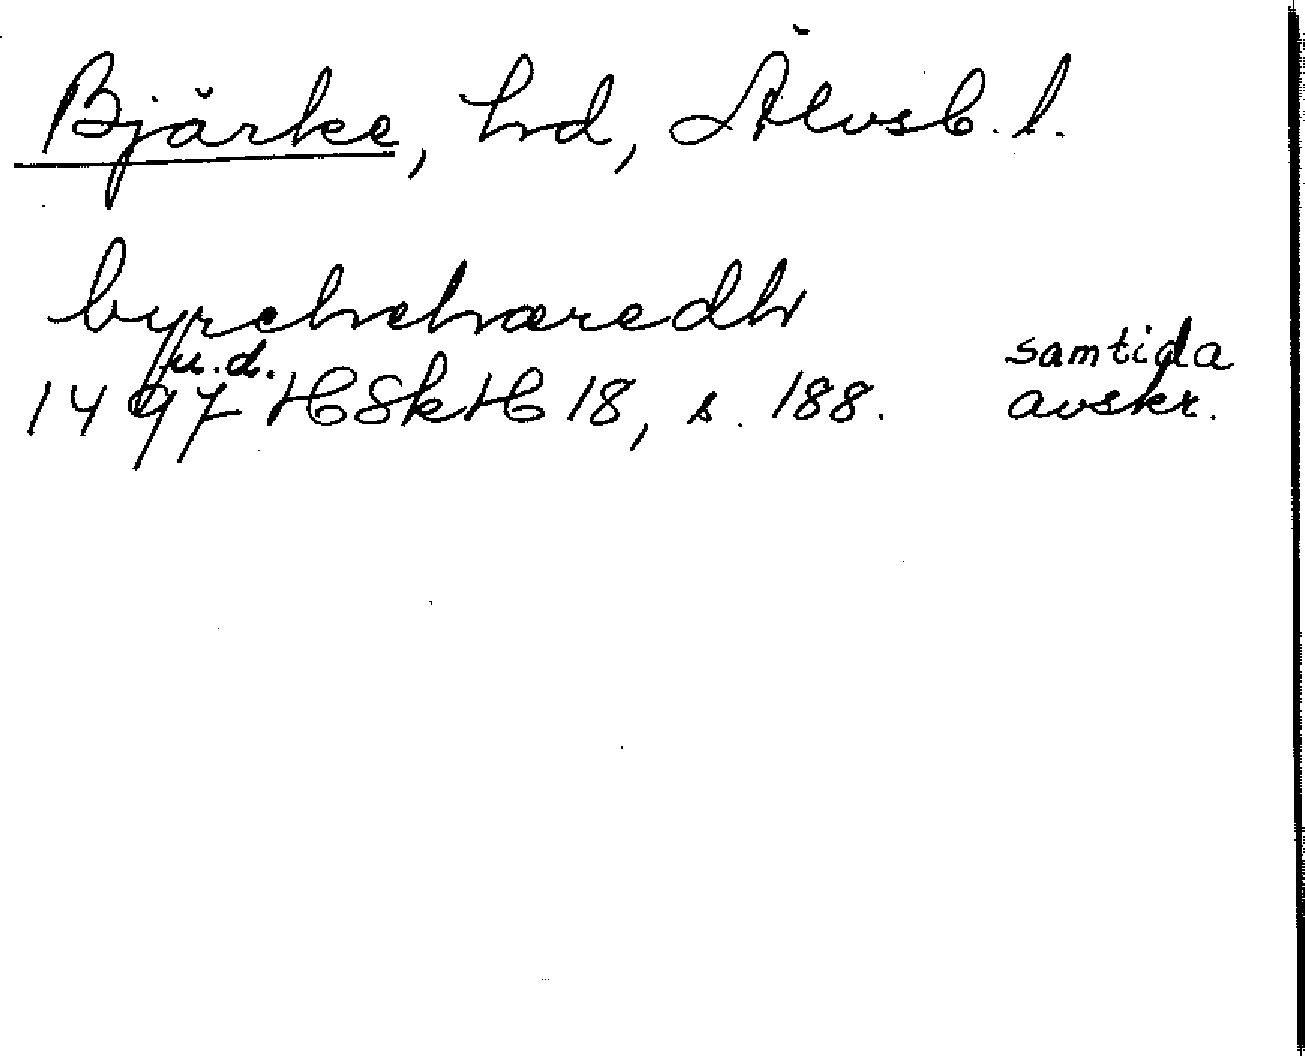 Bjärke, hd, Älvsb. l.
byrchehæredh
u.d.
samtida
1497 HSkH 18, s. 188. avskr.